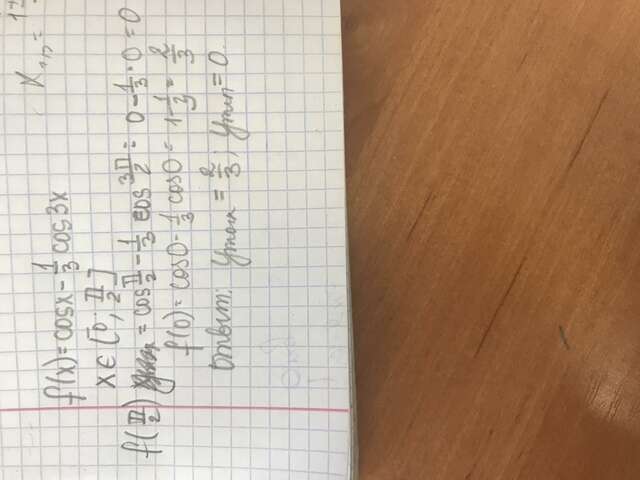 x₁,₂ =
f(x) = cosx - 1/3 cos3x
x ∈ [0; π/2]
f(π/2) = cos π/2 - 1/3 cos 3π/2 = 0 - 1/3 · 0 = 0
f(0) = cos0 - 1/3 cos0 = 1 - 1/3 = 2/3
Ответ: yнаиб = 2/3; yнаим = 0.